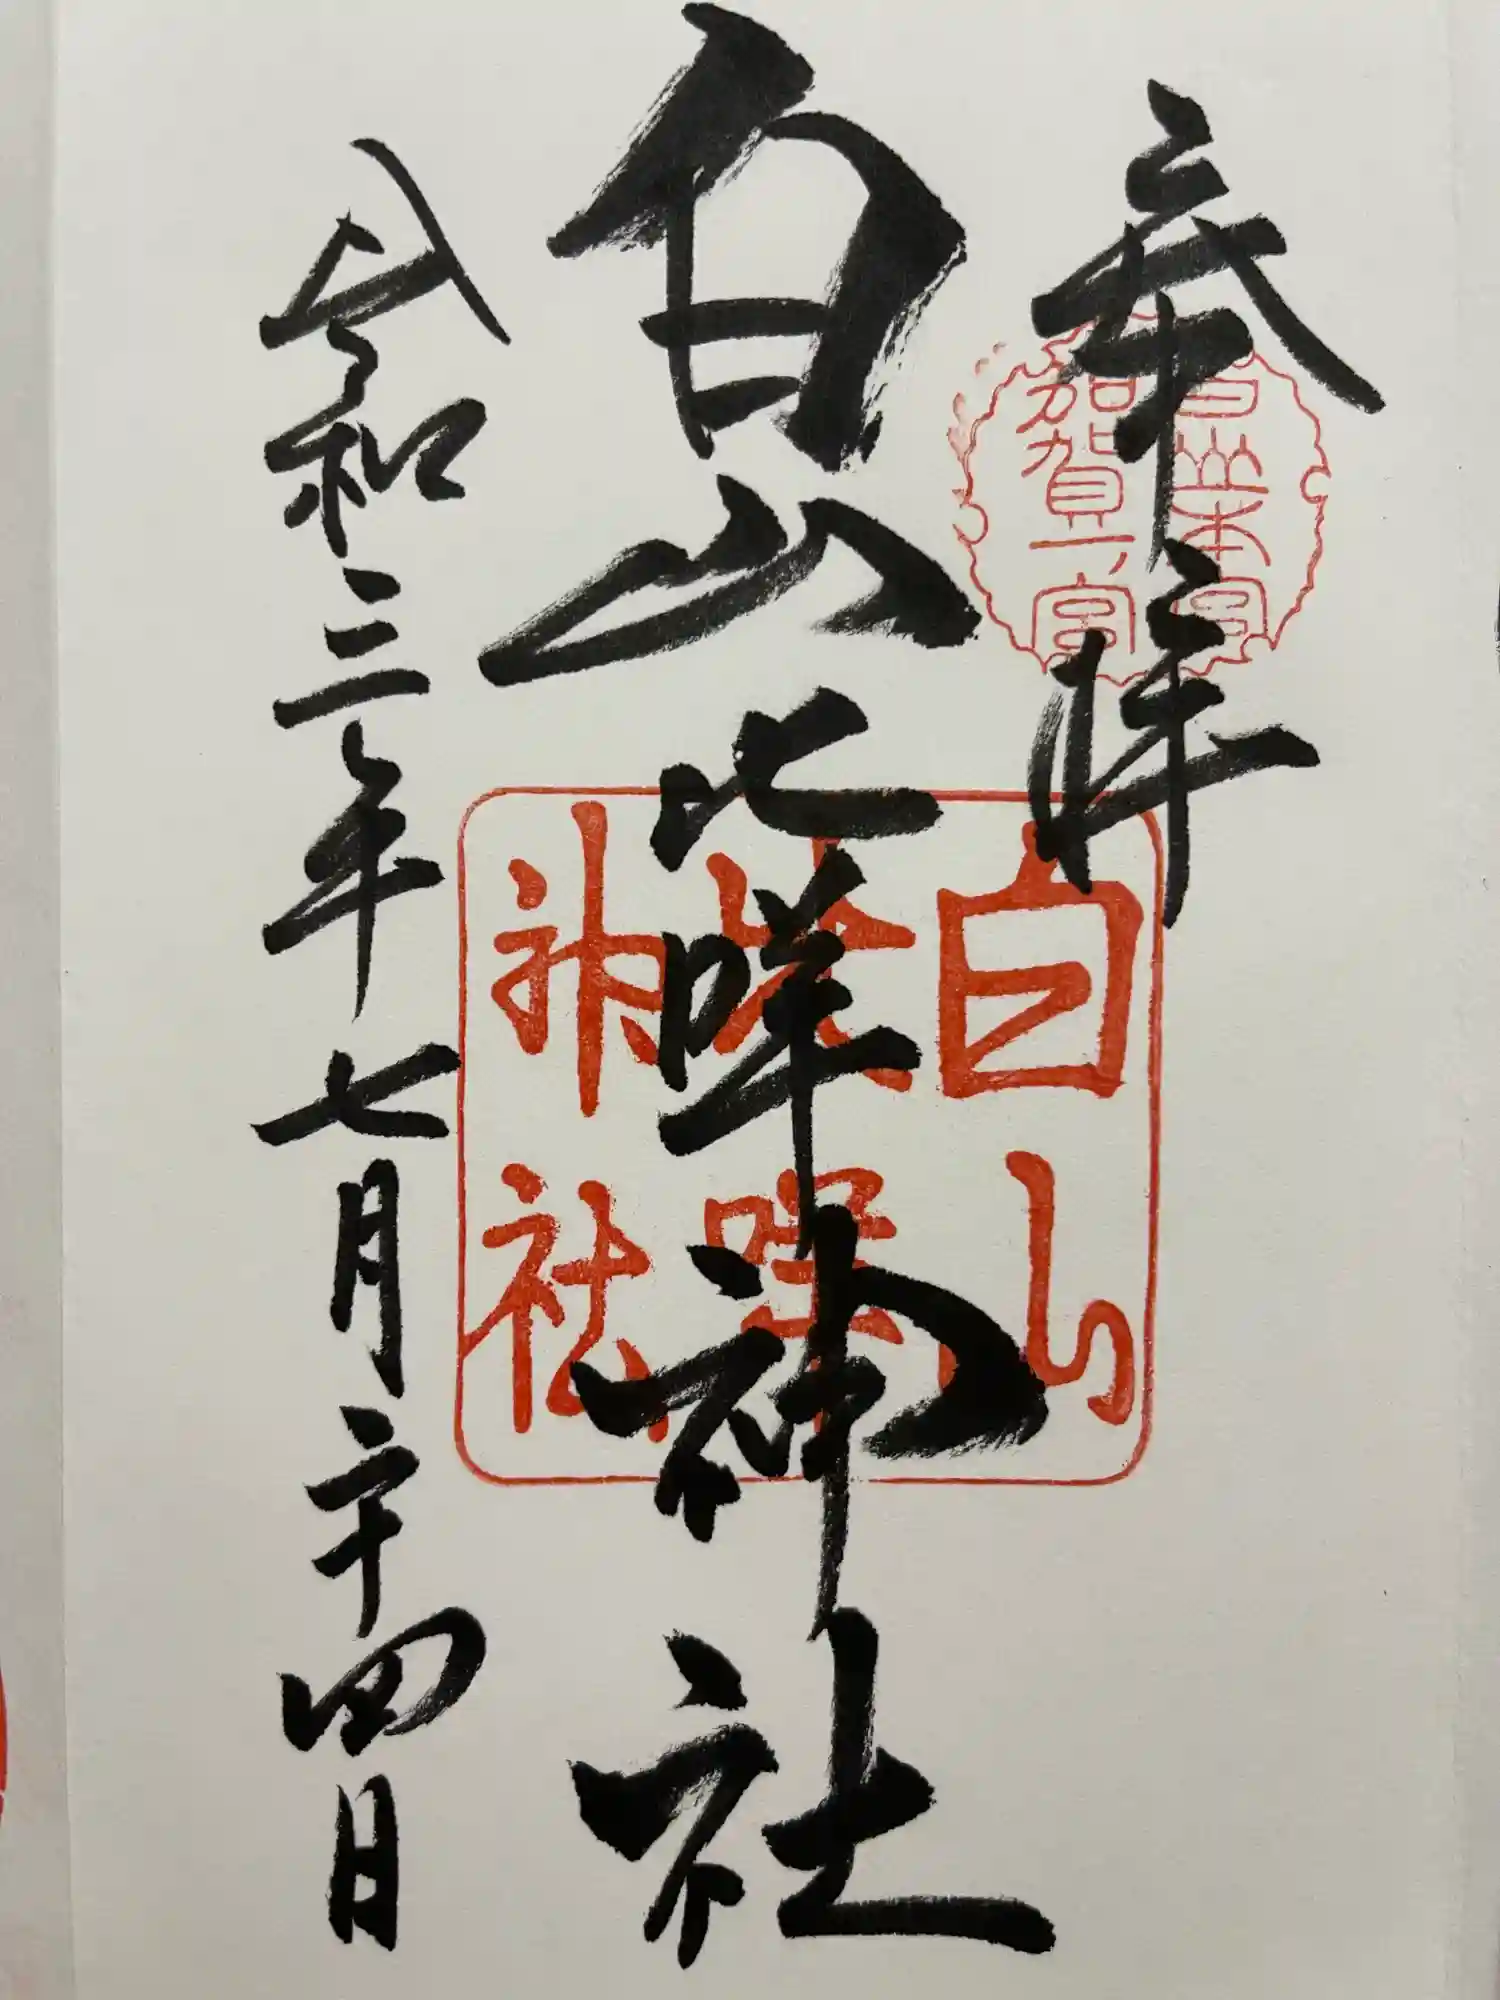 奉拝
白山本宮
加賀一ノ宮
白山比咩神社
白山
比咩
神社
令和三年七月二十四日